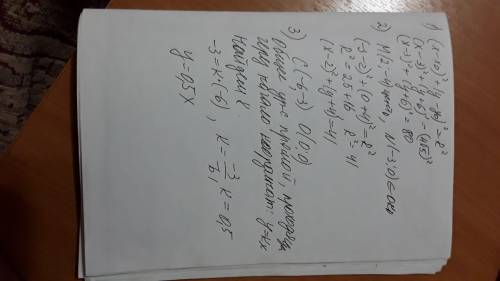 1) (x-x0)²+(y-y0)²=R²
(x-3)²+(y+6)²=(4√5)²
(x-3)²+(y+6)²=80
2) M(2;-4) центр, N(-3;0)∈окр
(-3-2)²+(0+4)²=R²
R²=25+16 R²=41
(x-2)²+(y+4)²=41
3) C(-6;-3) O(0;0)
Общее ур-е прямой,
через начало координат: y=кx
Найдём к
-3=к·(-6), к=-3/-6, к=0,5
y=0,5x